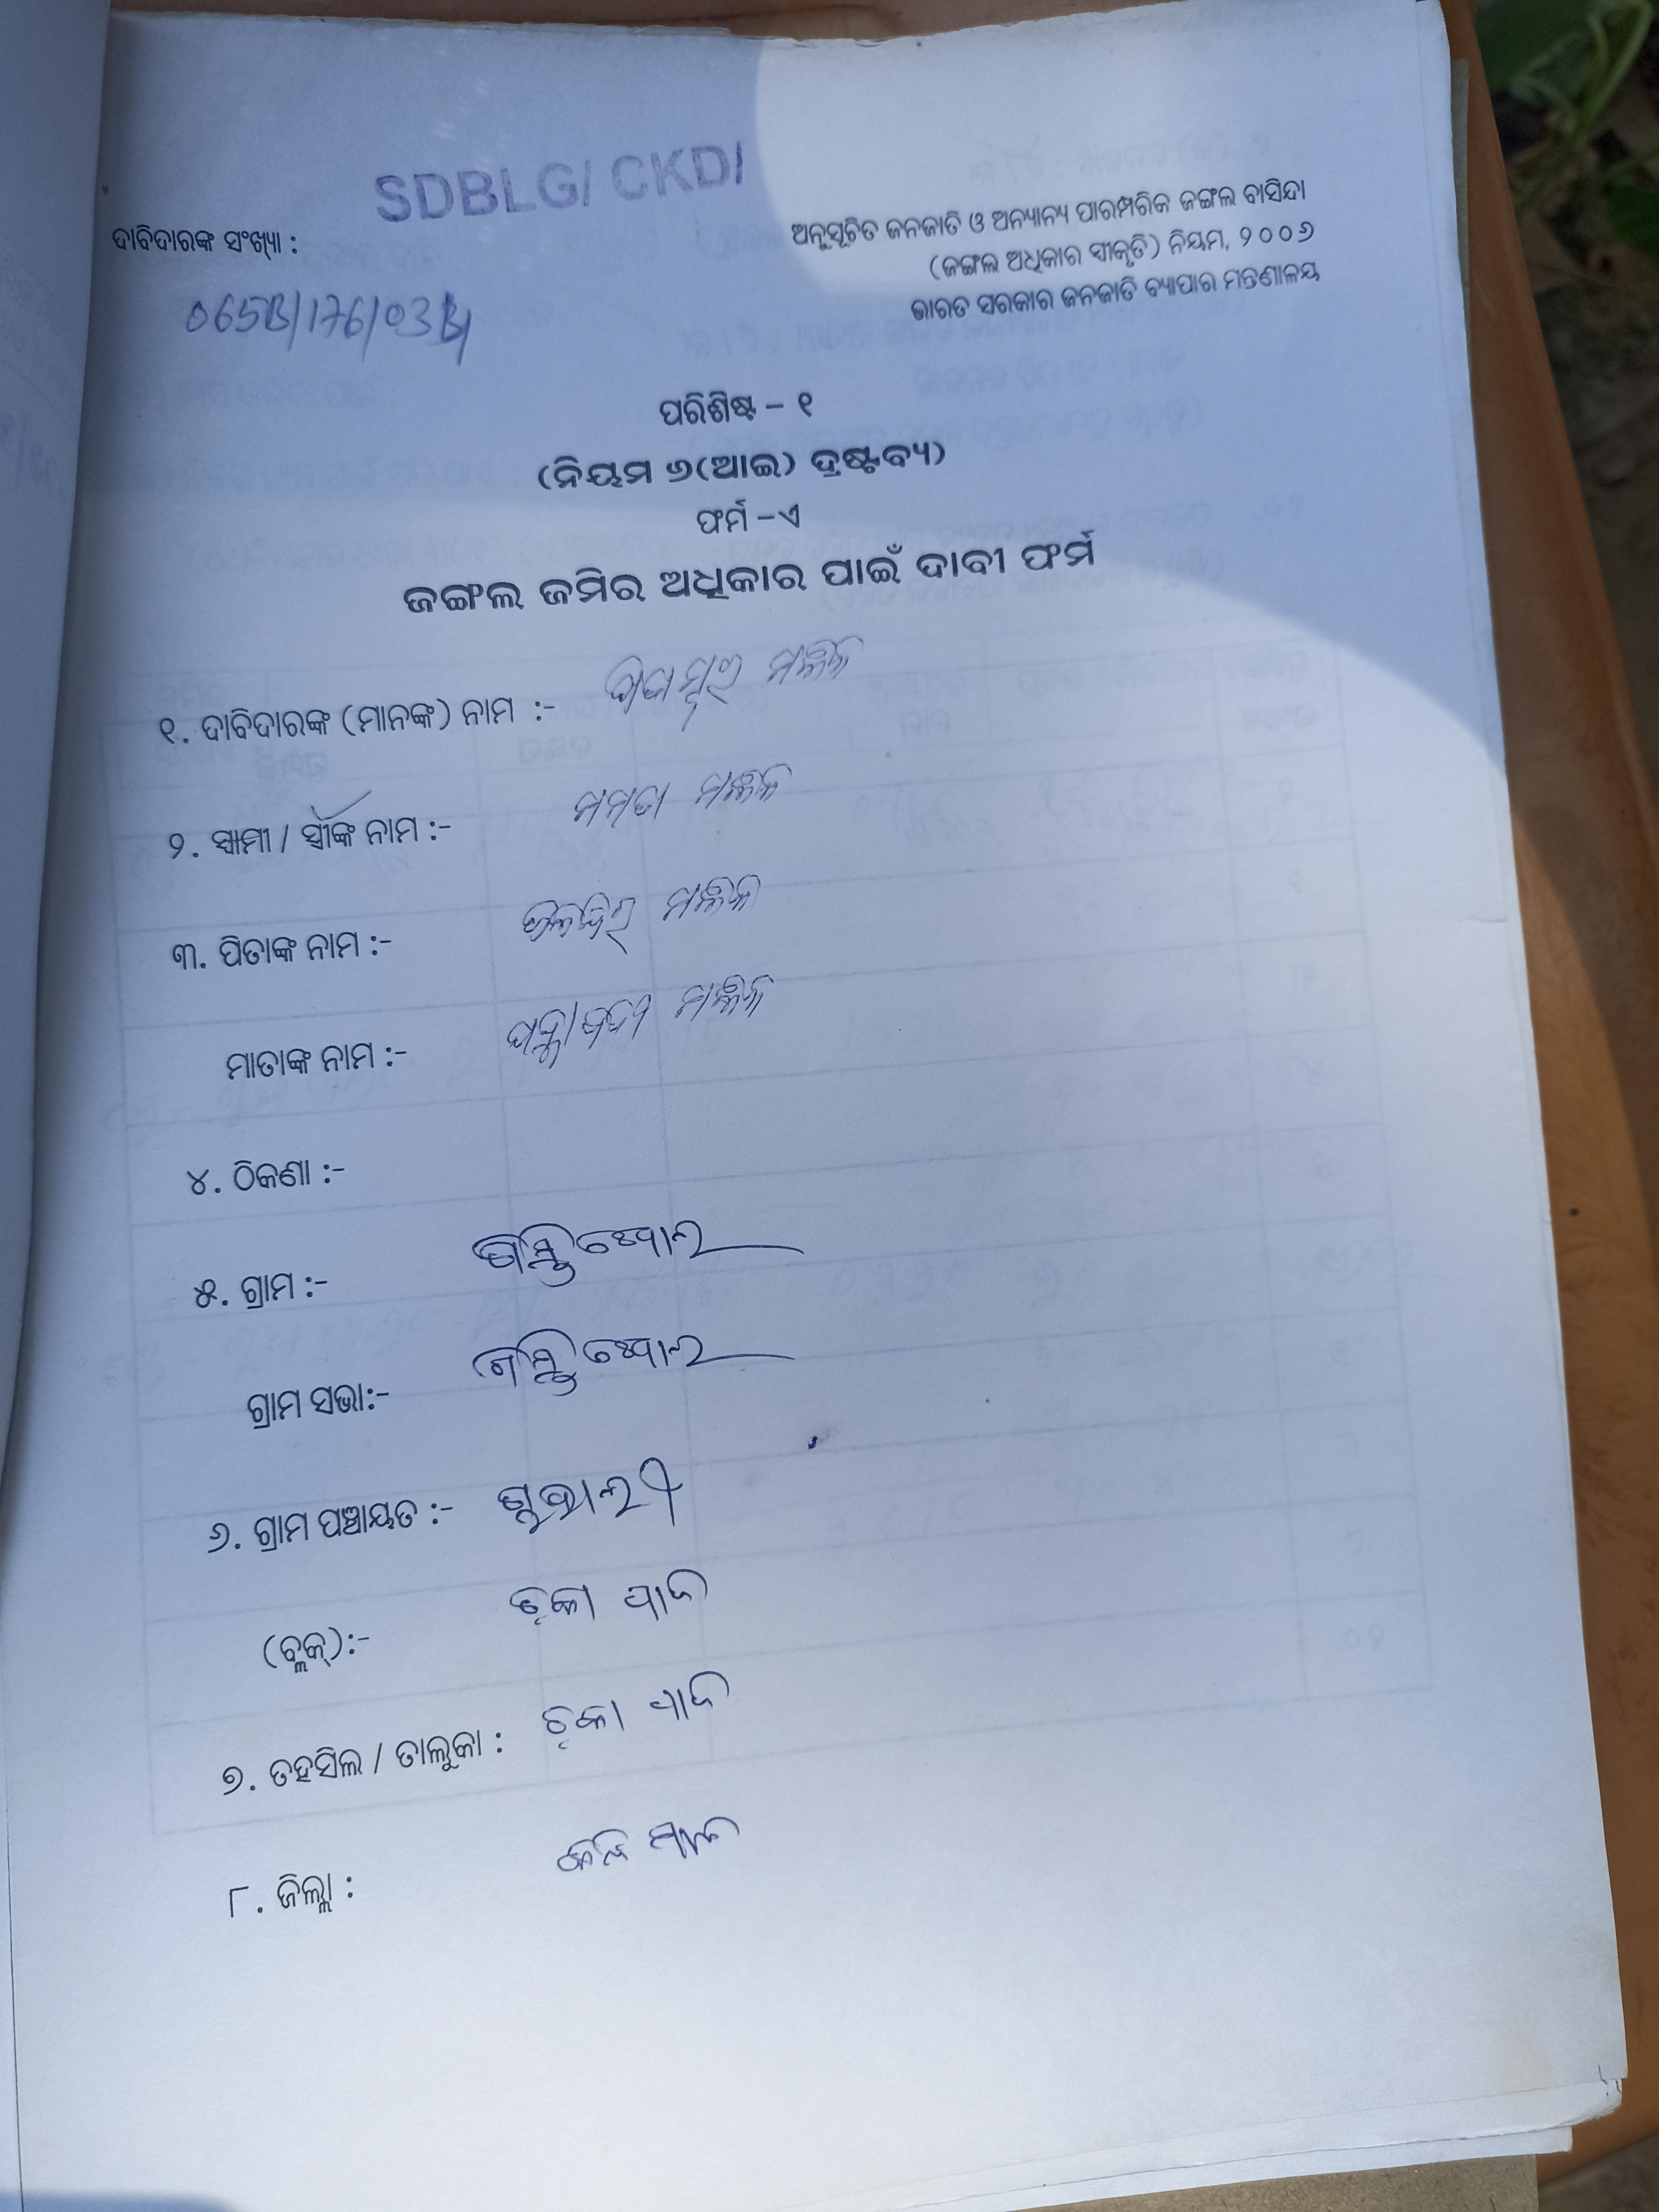 SDBLG/ CKD/
ଦାବିଦାରଙ୍କ ସଂଖ୍ୟା :
065B/176/03B/
ଅନୁସୂଚିତ ଜନଜାତି ଓ ଅନ୍ୟାନ୍ୟ ପାରମ୍ପରିକ ଜଙ୍ଗଲ ବାସିନ୍ଦା
(ଜଙ୍ଗଲ ଅଧିକାର ସ୍ୱୀକୃତି) ନିୟମ, ୨୦୦୬
ଭାରତ ସରକାର ଜନଜାତି ବ୍ୟାପାର ମନ୍ତଣାଳୟ
ପରିଶିଷ୍ଟ – ୧
(ନିୟମ ୬(ଆଇ) ଦ୍ରଷ୍ଟବ୍ୟ)
ଫର୍ମ –ଏ
ଜଙ୍ଗଲ ଜମିର ଅଧିକାର ପାଇଁ ଦାବୀ ଫର୍ମ
୧. ଦାବିଦାରଙ୍କ (ମାନଙ୍କ) ନାମ :- ମଲ୍ଲିକ
୨. ସ୍ୱାମୀ / ସ୍ତ୍ରୀଙ୍କ ନାମ :- ମମତା ମଲ୍ଲିକ
୩. ପିତାଙ୍କ ନାମ :- ମଲ୍ଲିକ
ମାତାଙ୍କ ନାମ :- ମଲ୍ଲିକ
୪. ଠିକଣା :-
୫. ଗ୍ରାମ :-
ଗ୍ରାମ ସଭା:-
୬. ଗ୍ରାମ ପଞ୍ଚାୟତ :-
(ବ୍ଲକ୍):- ଚକାପାଦ
୭. ତହସିଲ / ତାଲୁକା : ଚକାପାଦ
୮. ଜିଲ୍ଲା : କନ୍ଧମାଳ